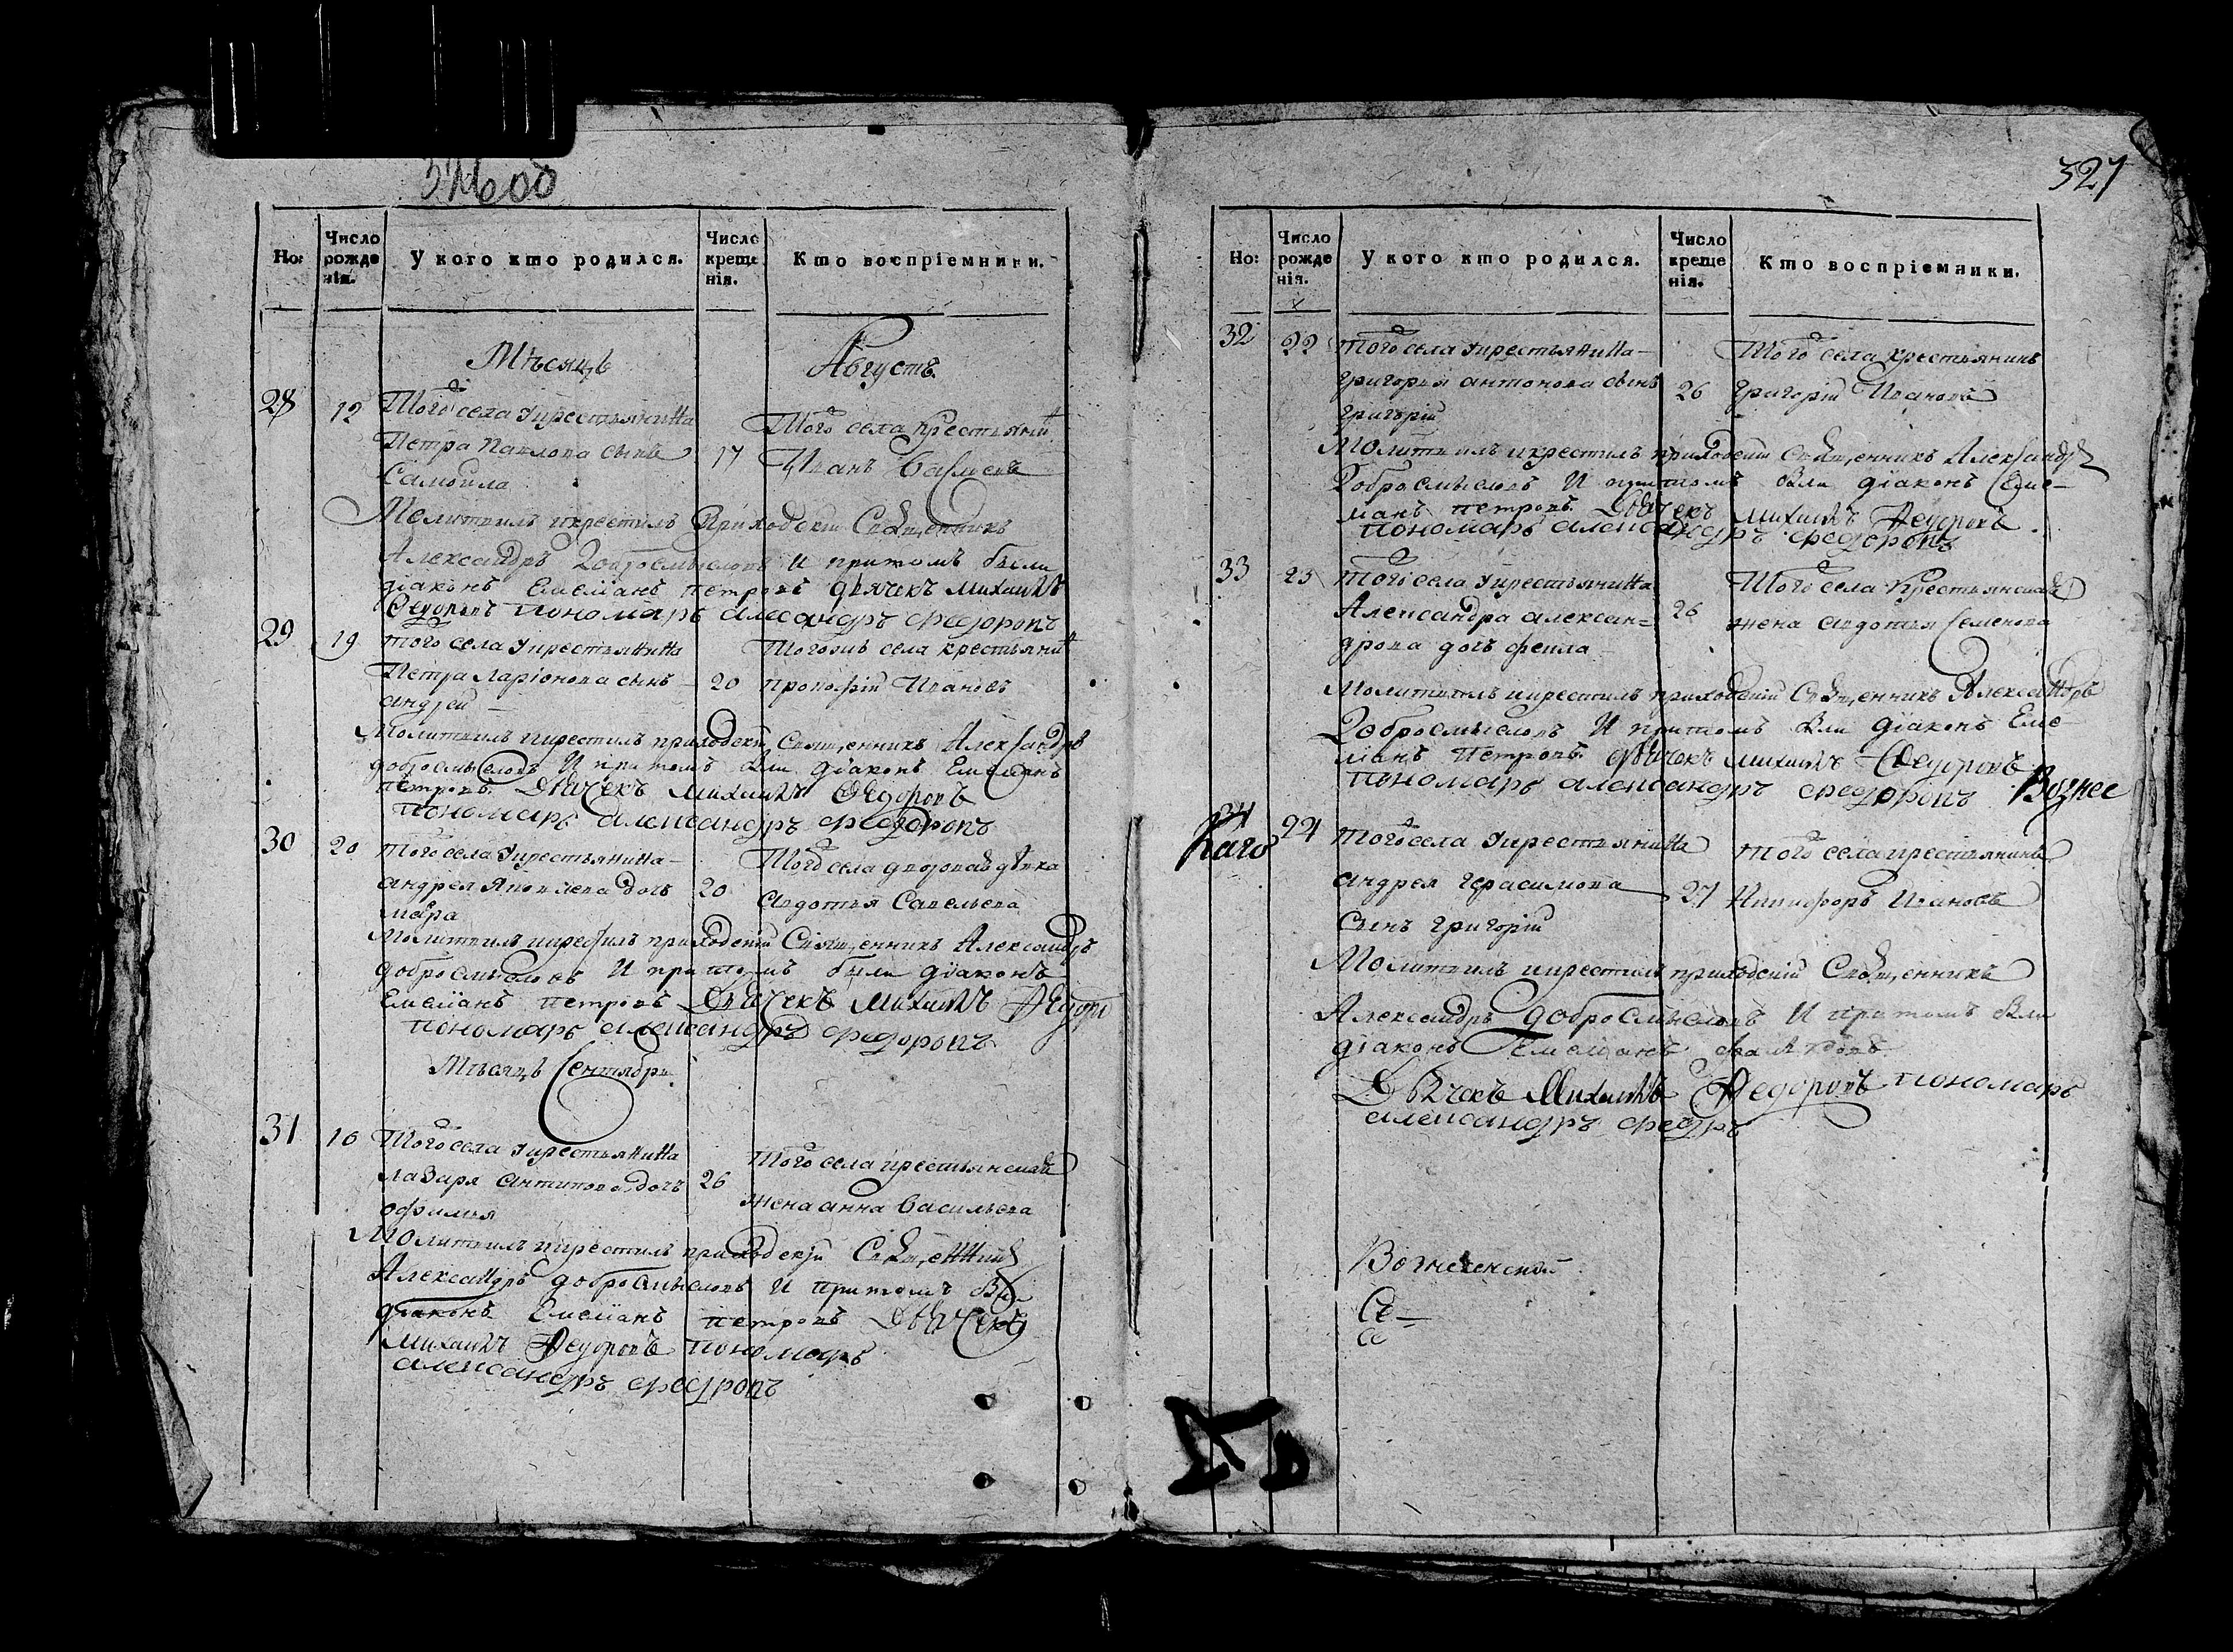 327
Но:
Число рожденія.
У кого кто родился.
Число крещенія.
Кто воспріемники.
Мѣсяцъ Августъ
28
12
Того села крестьянина
Петра Павлова сынъ
Самоила
17
Того села крестьянинъ
Иванъ
Молитвилъ и крестилъ приходскій Священникъ
Александръ Добросмысловъ И притомъ были
діаконъ Емеліанъ петровъ дьячекъ михаилъ
Федоровъ пономарь алесандръ федоровъ
29
19
того села крестьянина
Петра Ларіонова сынъ
андрей
20
Тогожъ села крестьянинъ
прокофій Ивановъ
Молитвилъ и крестилъ приходскій Священникъ Александръ
добросмысловъ И притомъ были діаконъ Емеліанъ
петровъ Дьячекъ михаилъ Федоровъ
пономарь александръ федоровъ
30
20
того села крестьянина
андрея Яковлева дочь
мавра
20
Того села дворовая дѣвка
авдотья Савельева
Молитвилъ и крестилъ приходскій Священникъ Александръ
добросмысловъ И притомъ были діаконъ
Емеліанъ петровъ Дьячекъ михаилъ Федоровъ
пономарь александръ федоровъ
Мѣсяцъ Сентябрь
31
16
Того села крестьянина
лазаря антипова дочь
офимья
26
Того села крестьянская
жена анна васильева
Молитвилъ и крестилъ приходскій Священникъ
Александръ добросмысловъ И притомъ были
діаконъ Емеліанъ петровъ Дьячекъ
михаилъ Федоровъ пономарь
александръ федровъ
Но:
Число рожденія.
У кого кто родился.
Число крещенія.
Кто воспріемники.
32
22
того села крестьянина
григорья антонова сынъ
григорій
26
Того села крестьянинъ
григорій Ивановъ
Молитвилъ и крестилъ приходскій Священникъ Александръ
Добросмысловъ И притомъ были діаконъ Емеліанъ петровъ Дьячекъ михаилъ Федоровъ
пономарь александръ федоровъ
33
23
того села крестьянина
Александра александрова дочь фекла
26
Того села крестьянская
жена авдотья Семенова
Молитвилъ и крестилъ приходскій Священникъ Александръ
Добросмысловъ И притомъ были діаконъ Емеліанъ петровъ дьячекъ михаилъ Федоровъ
пономарь александръ федоровъ Вознесе
34
24
того села крестьянина
андрея герасимова
сынъ григорій
27
того села крестьянинъ
Никифоръ Ивановъ
Молитвилъ и крестилъ приходскій Священникъ
Александръ добросмысловъ И притомъ были
діаконъ Емеліанъ
Дьячекъ Михаилъ Федоровъ пономарь
александръ федръ
Вознесенской
Се
се